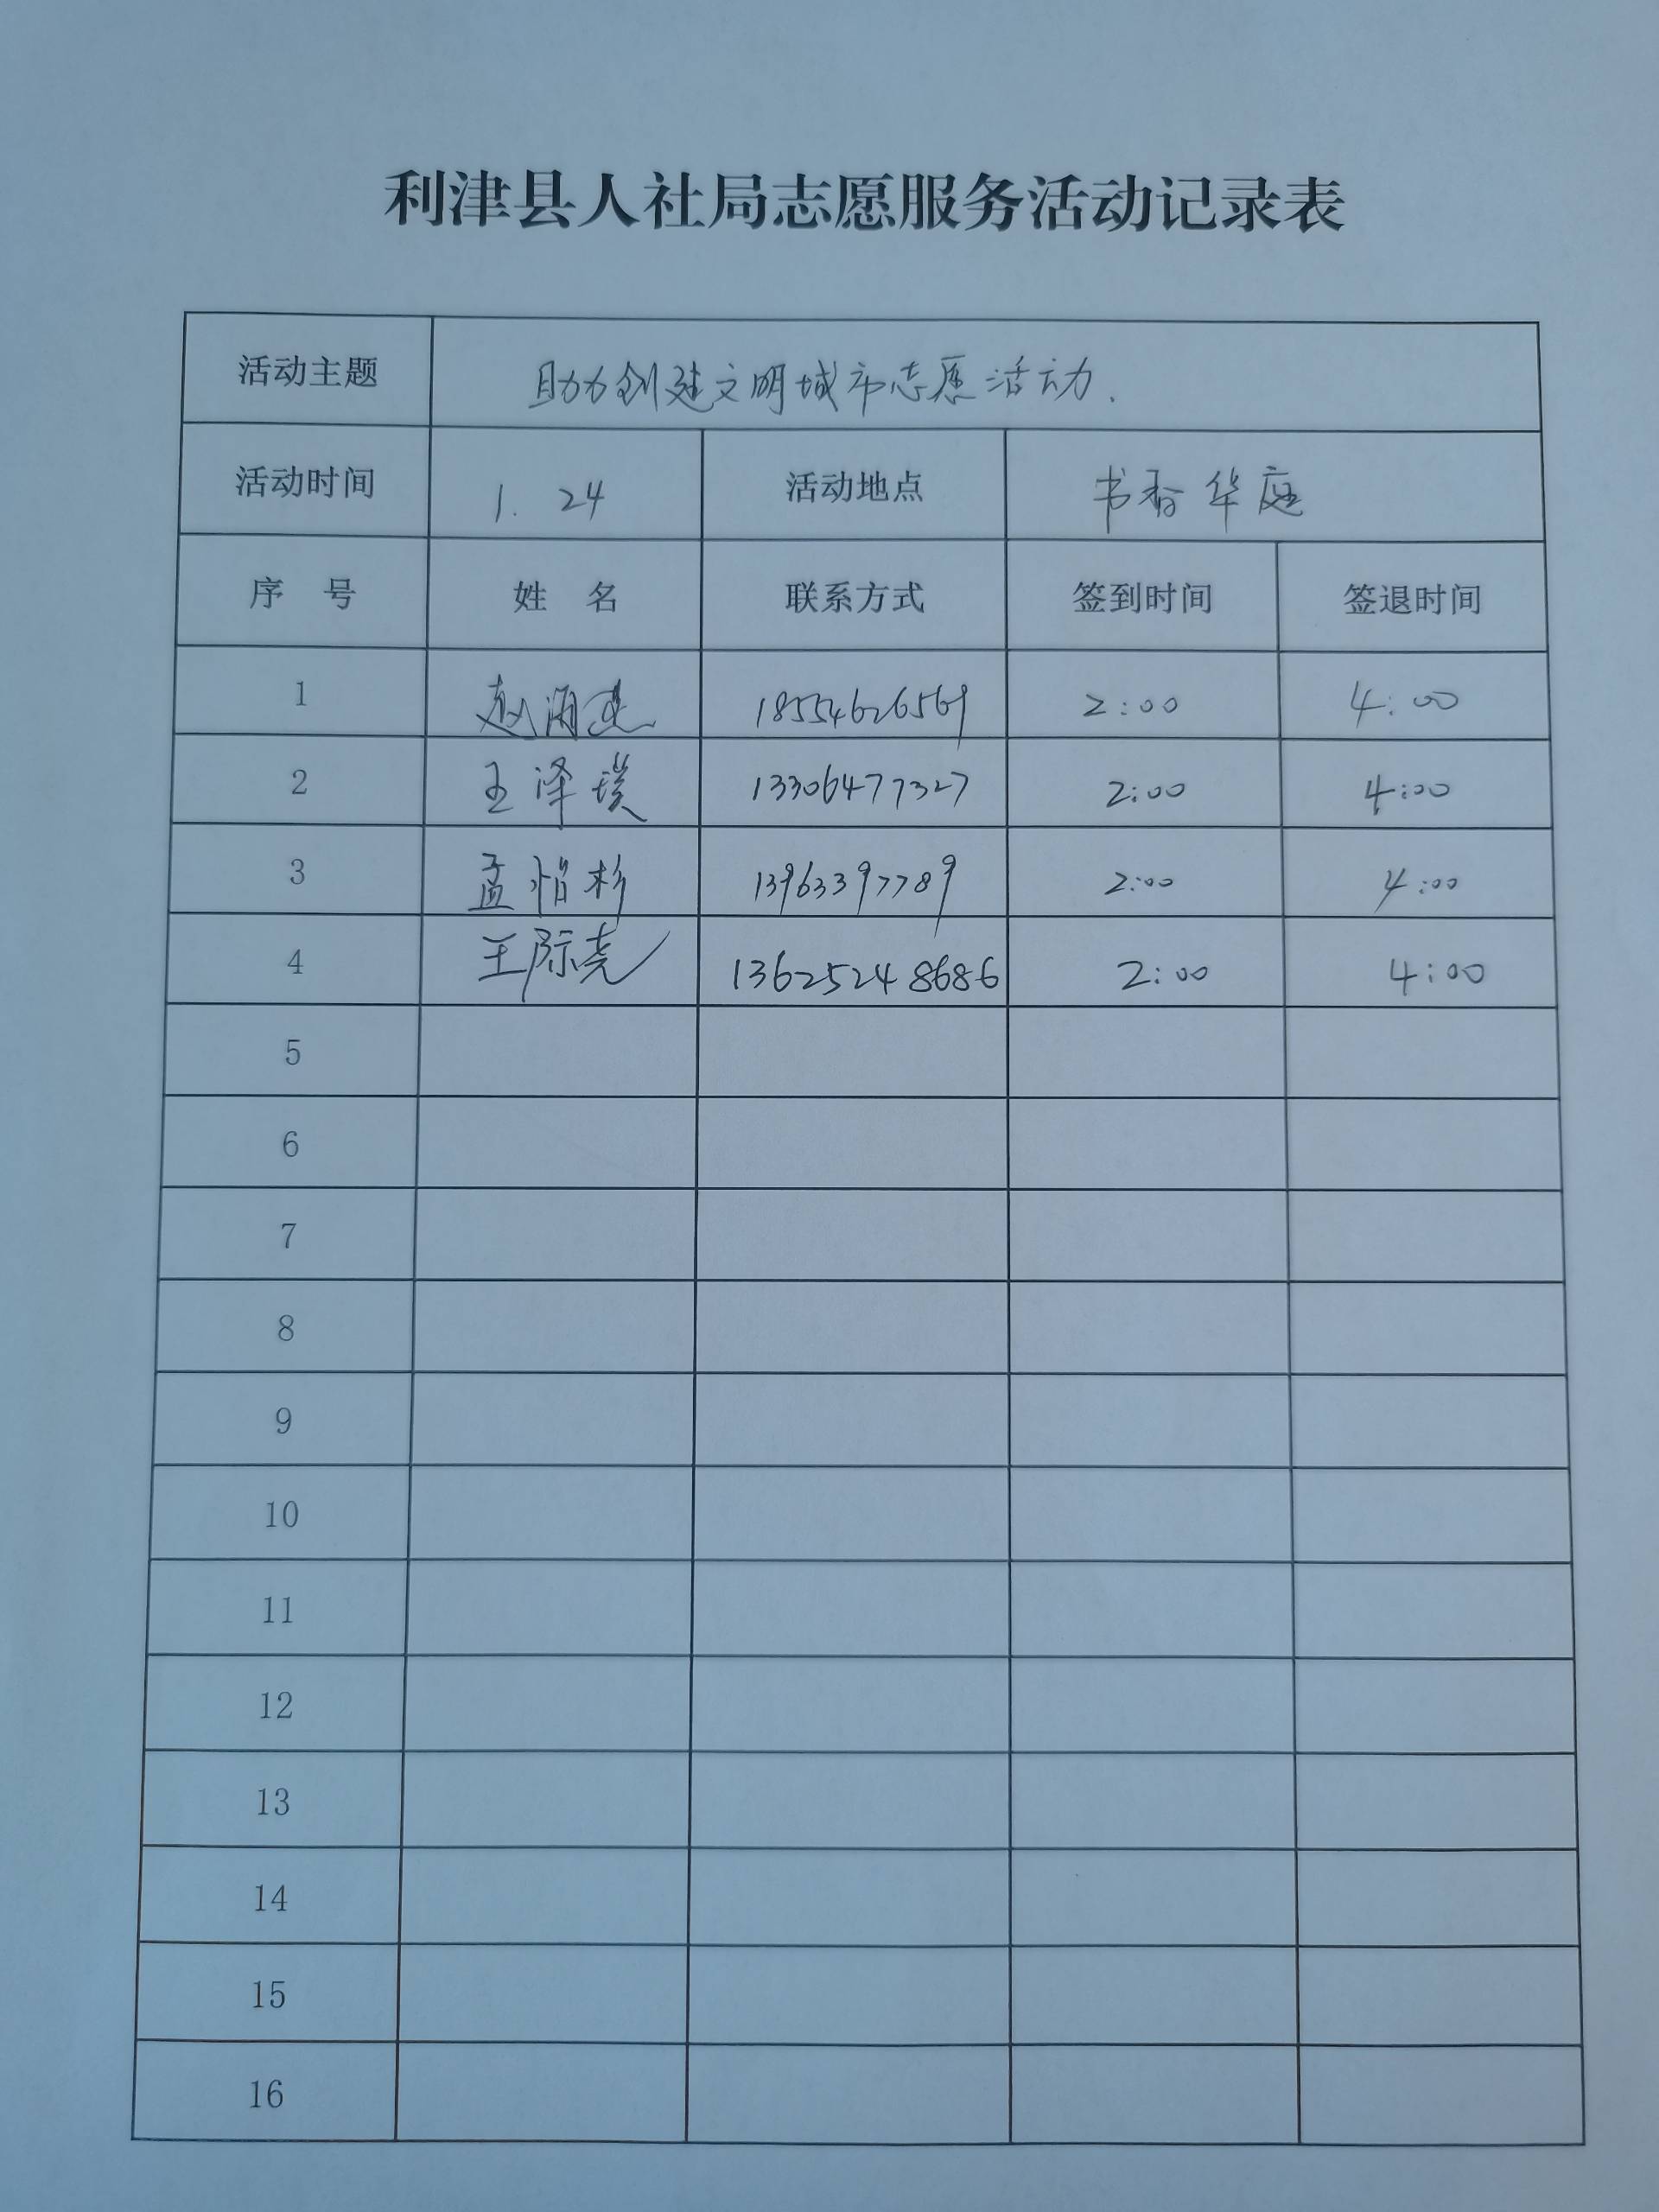 利津县人社局志愿服务活动记录表
活动主题 助力创建文明城市志愿活动.
活动时间 1. 24 活动地点 书香华庭
序 号 姓 名 联系方式 签到时间 签退时间
1 赵 18554626569 2:00 4:00
2 王泽璞 13306477327 2:00 4:00
3 孟 杉 13963397789 2:00 4:00
4 王际尧 13625248686 2:00 4:00
5
6
7
8
9
10
11
12
13
14
15
16